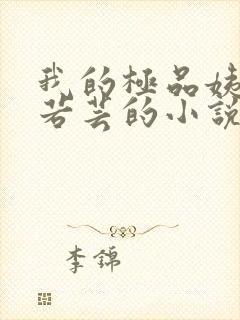 我的極品姨
若芸的小說
李錦